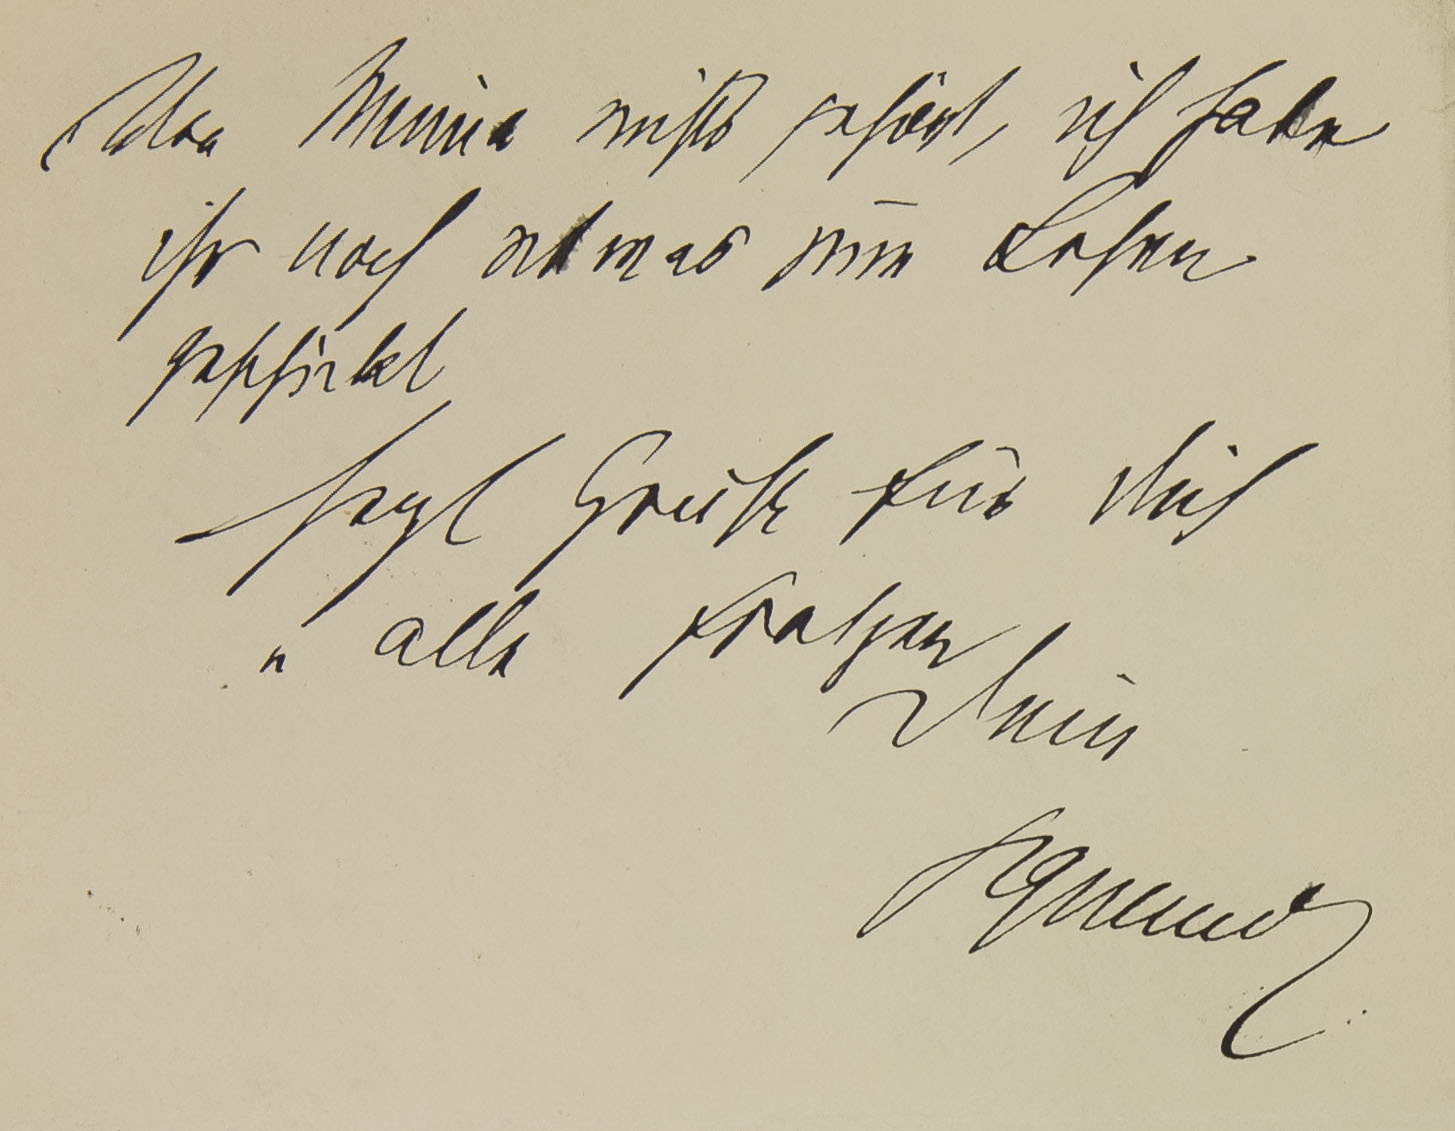 Von Minna nichts gehört, ich habe
ihr noch etwas zum Lesen
geschickt
Herzl Grüße für Dich
u alle Fratzen
Dein
Sigmund